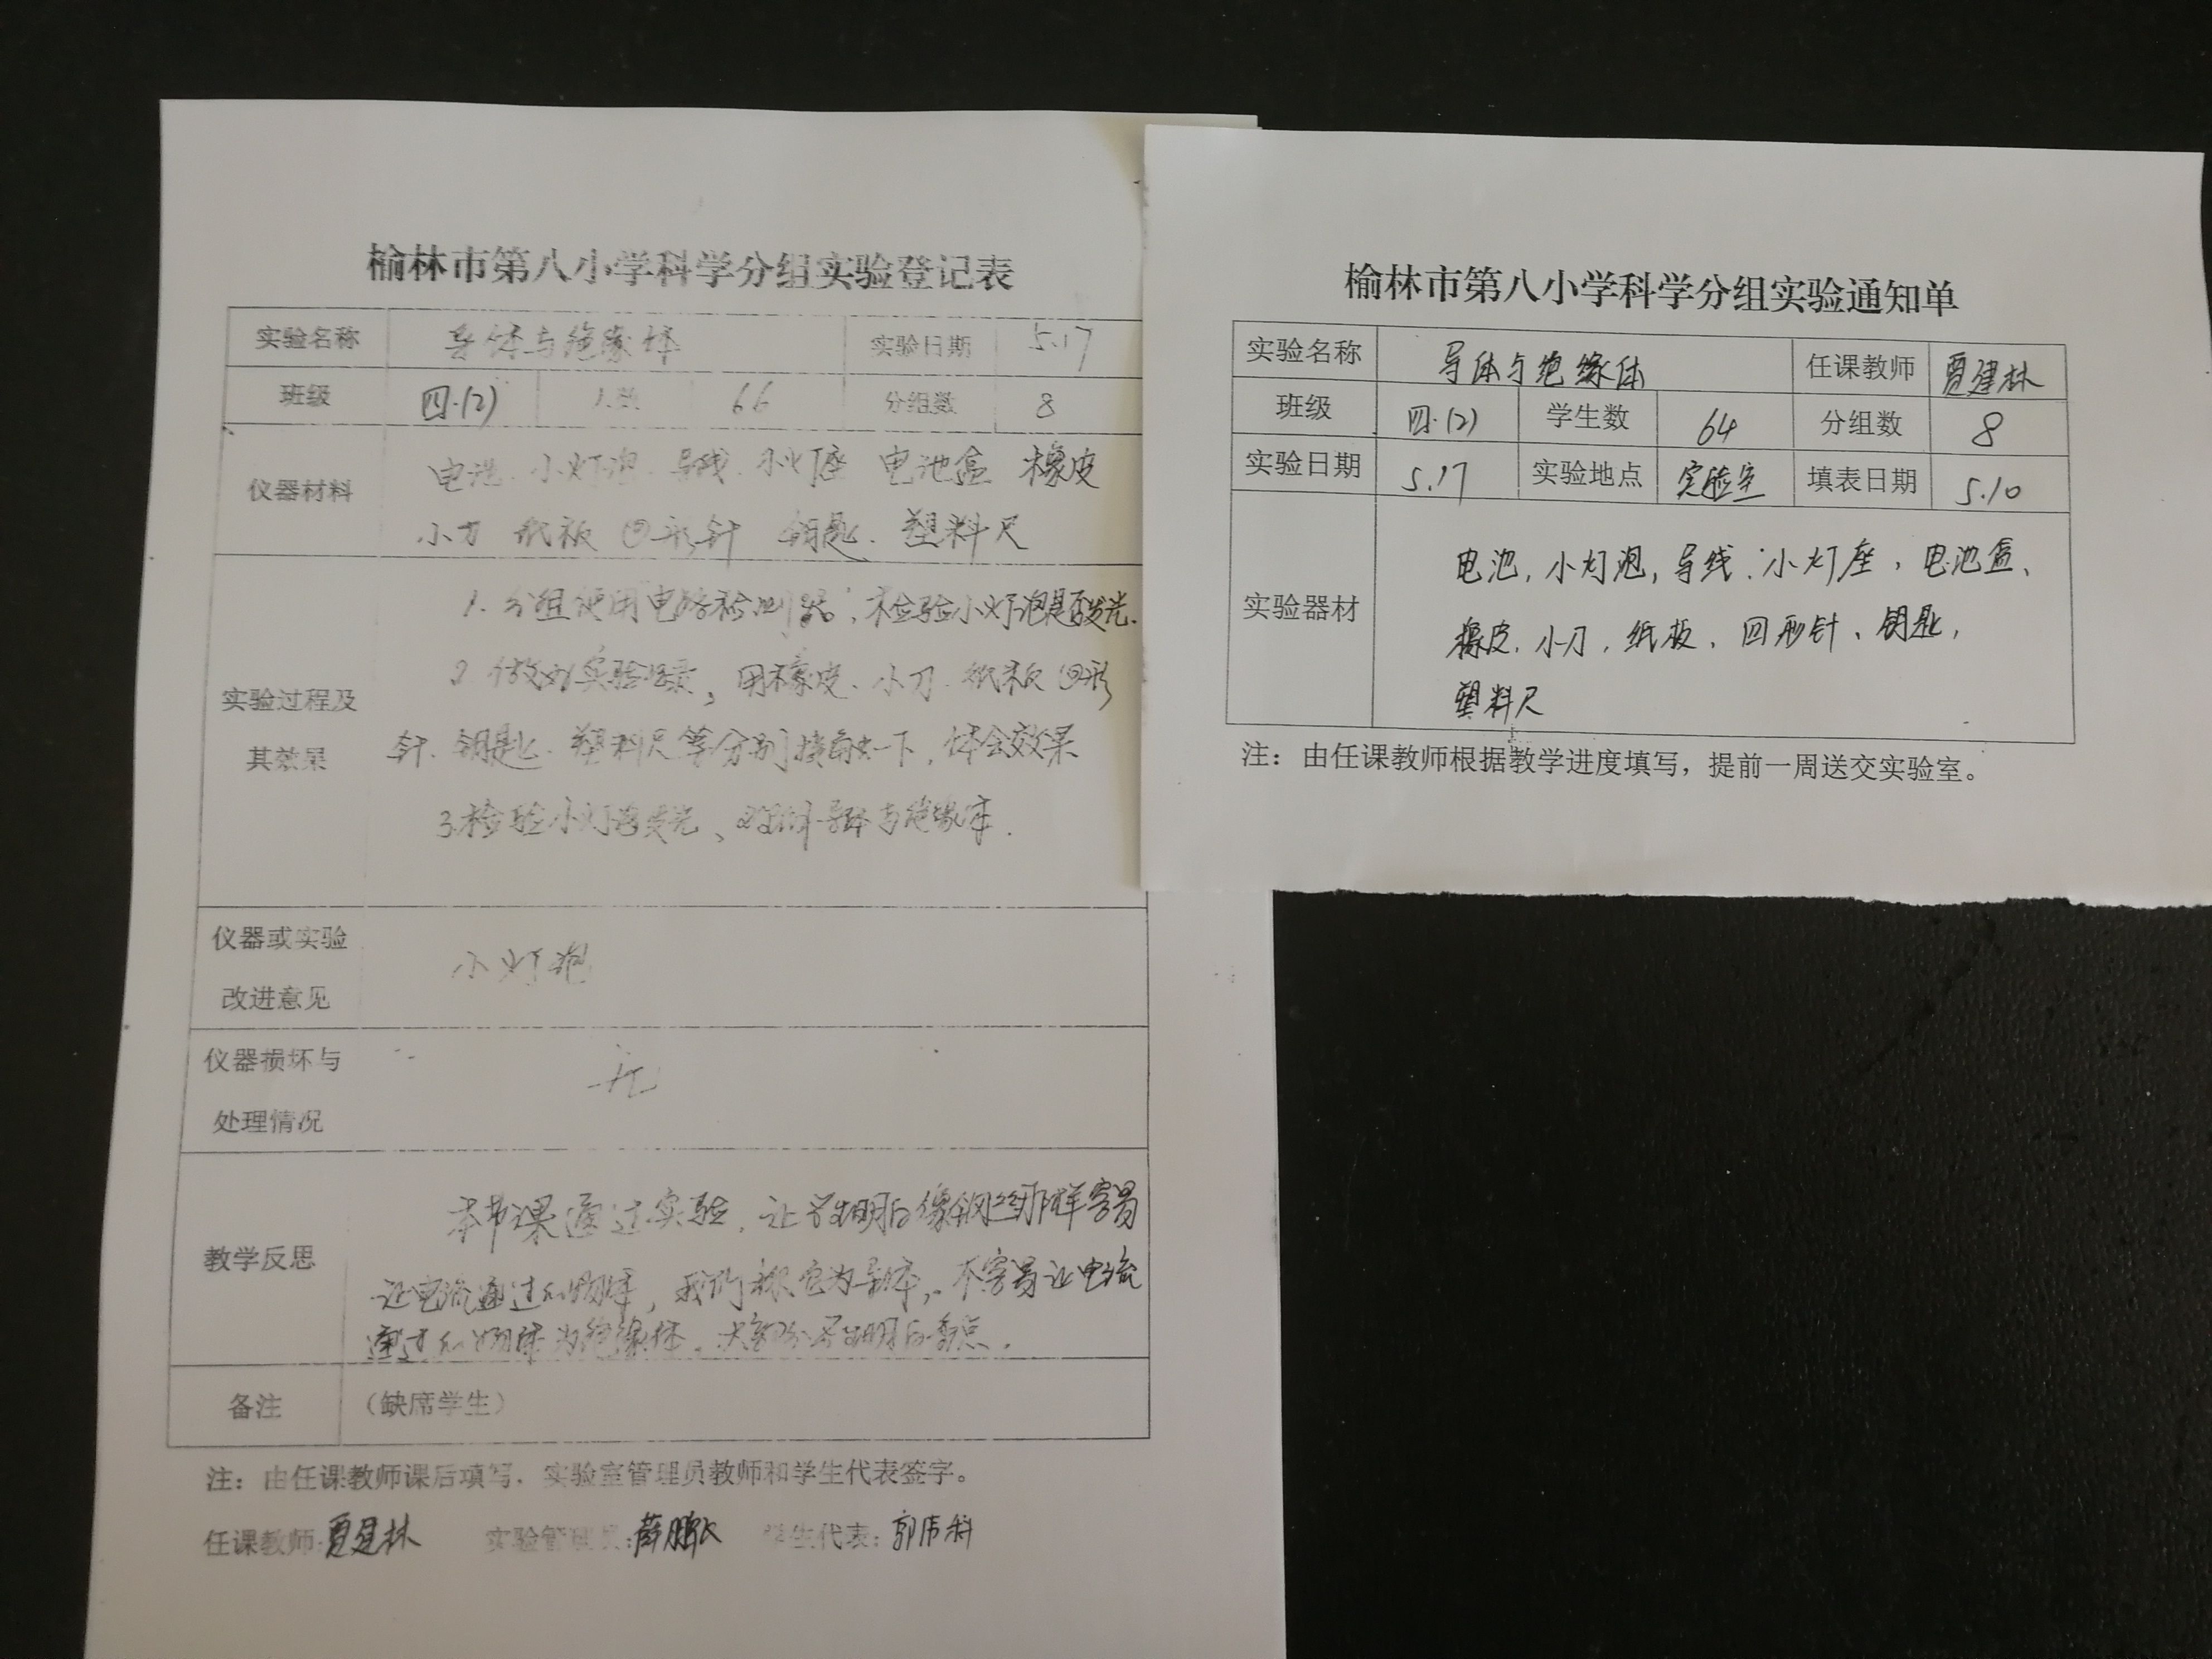 榆林市第八小学科学分组实验登记表
实验名称 导体与绝缘体 实验日期 5.17
班级 四.(2) 人数 66 分组数 8
仪器材料
电池 小灯泡 导线 小灯座 电池盒 橡皮
小刀 纸板 回形针 钥匙. 塑料尺
实验过程及
其效果
1. 分组使用电路检测器, 检验小灯泡是否发光.
2 做好实验记录, 用橡皮、小刀 纸板 回形
针. 钥匙. 塑料尺等分别接触一下, 体会效果
3.检验小灯泡发光、导体与绝缘体.
仪器或实验
改进意见
小灯泡
仪器损坏与
处理情况
无
教学反思
本节课通过实验, 让学生明白像铜丝那样容易
让电流通过的物体, 我们称它为导体, 不容易让电流
通过的物体为绝缘体. 大部分学生明白.
备注 (缺席学生)
注: 由任课教师课后填写, 实验室管理员教师和学生代表签字。
任课教师: 贾建林 实验管理员: 薛 学生代表: 郭
榆林市第八小学科学分组实验通知单
实验名称 导体与绝缘体 任课教师 贾建林
班级 四.(2) 学生数 64 分组数 8
实验日期 5.17 实验地点 实验室 填表日期 5.10
实验器材
电池, 小灯泡, 导线, 小灯座, 电池盒、
橡皮, 小刀, 纸板、回形针、钥匙,
塑料尺
注: 由任课教师根据教学进度填写, 提前一周送交实验室。